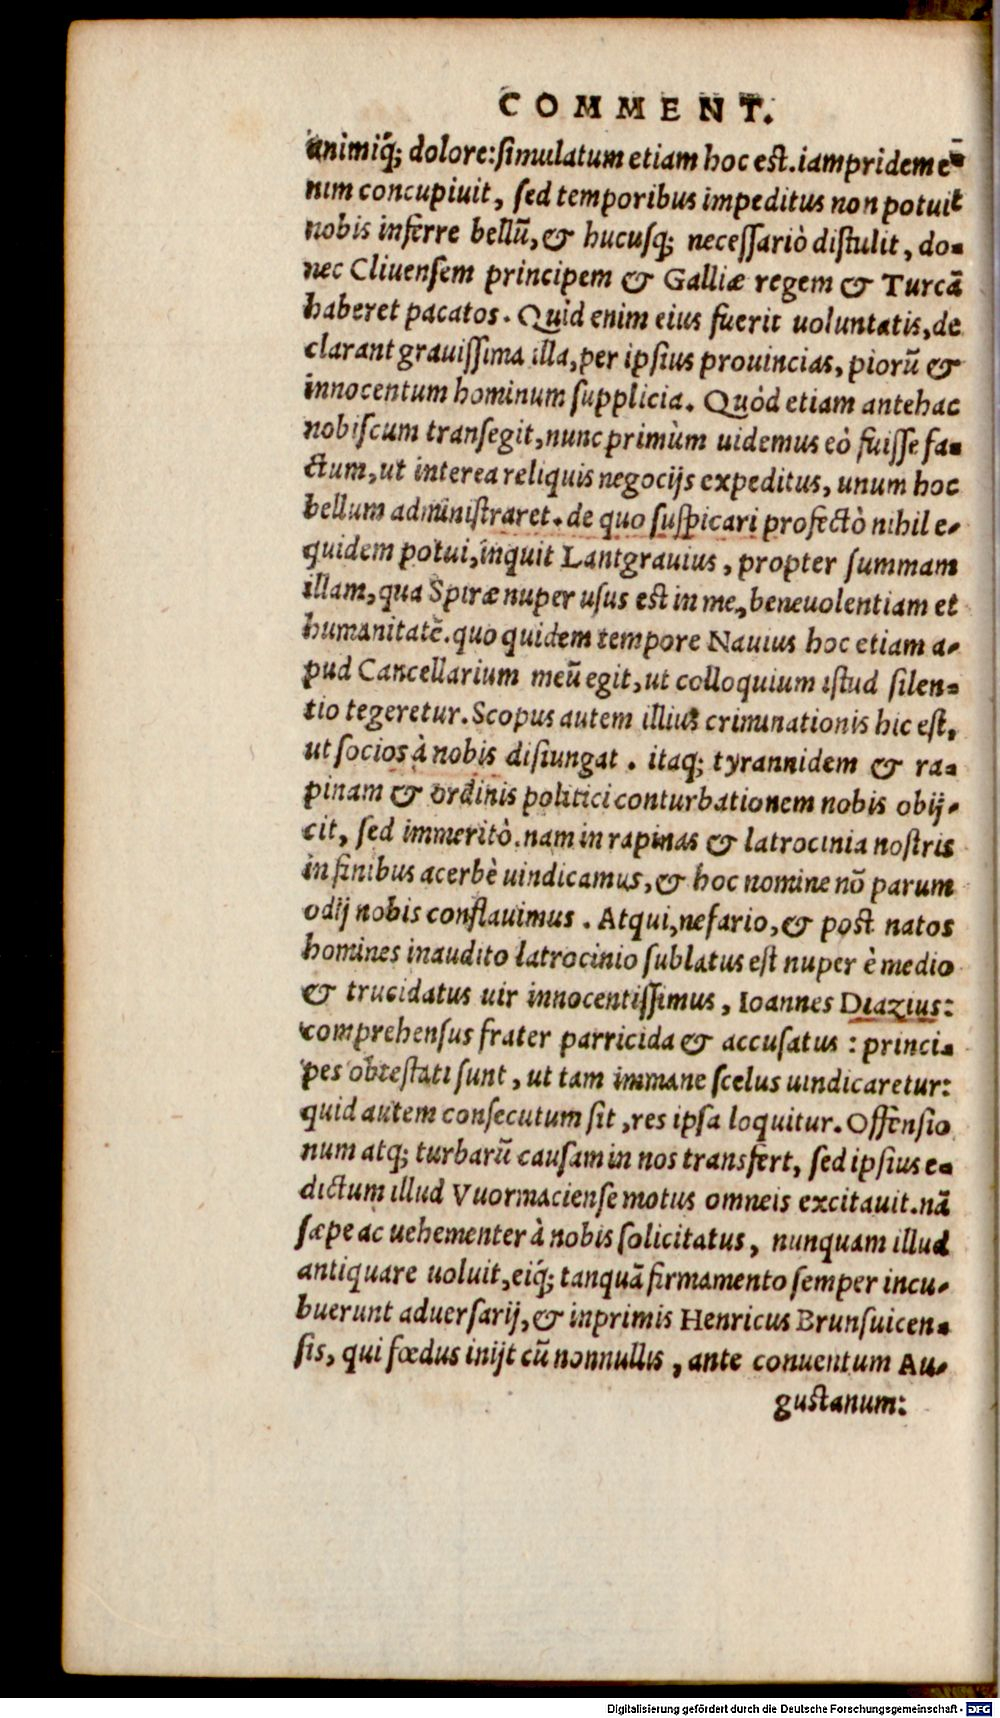 COMMENT.
animiq́; dolore: simulatum etiam hoc est. iampridem e-
nim concupiuit, sed temporibus impeditus non potuit
nobis inferre bellũ, & hucusq; necessariò distulit, do-
nec Cliuensem principem & Galliæ regem & Turcã
haberet pacatos. Quid enim eius fuerit uoluntatis, de
clarant grauissima illa, per ipsius prouincias, piorũ &
innocentum hominum supplicia. Quòd etiam antehac
nobiscum transegit, nunc primùm uidemus eò fuisse fa-
ctum, ut interea reliquis negocijs expeditus, unum hoc
bellum administraret. de quo suspicari profectò nihil e-
quidem potui, inquit Lantgrauius, propter summam
illam, qua Spiræ nuper usus est in me, beneuolentiam et
humanitatẽ. quo quidem tempore Nauius hoc etiam a-
pud Cancellarium meũ egit, ut colloquium istud silen-
tio tegeretur. Scopus autem illius criminationis hic est,
ut socios à nobis disiungat. itaq; tyrannidem & ra-
pinam & ordinis politici conturbationem nobis obij-
cit, sed immeritò. nam in rapinas & latrocinia nostris
in finibus acerbè uindicamus, & hoc nomine nõ parum
odij nobis conflauimus. Atqui, nefario, & post natos
homines inaudito latrocinio sublatus est nuper è medio
& trucidatus uir innocentissimus, Ioannes Diazius:
comprehensus frater parricida & accusatus: princi-
pes obtestati sunt, ut tam immane scelus uindicaretur:
quid autem consecutum sit, res ipsa loquitur. Offensio
num atq; turbarũ causam in nos transfert, sed ipsius e-
dictum illud Vuormaciense motus omneis excitauit. nã
sæpe ac uehementer à nobis solicitatus, nunquam illud
antiquare uoluit, eiq́; tanquã firmamento semper incu-
buerunt aduersarij, & inprimis Henricus Brunsuicen-
sis, qui fœdus inijt cũ nonnullis, ante conuentum Au-
gustanum:
Digitalisierung gefördert durch die Deutsche Forschungsgemeinschaft - DFG